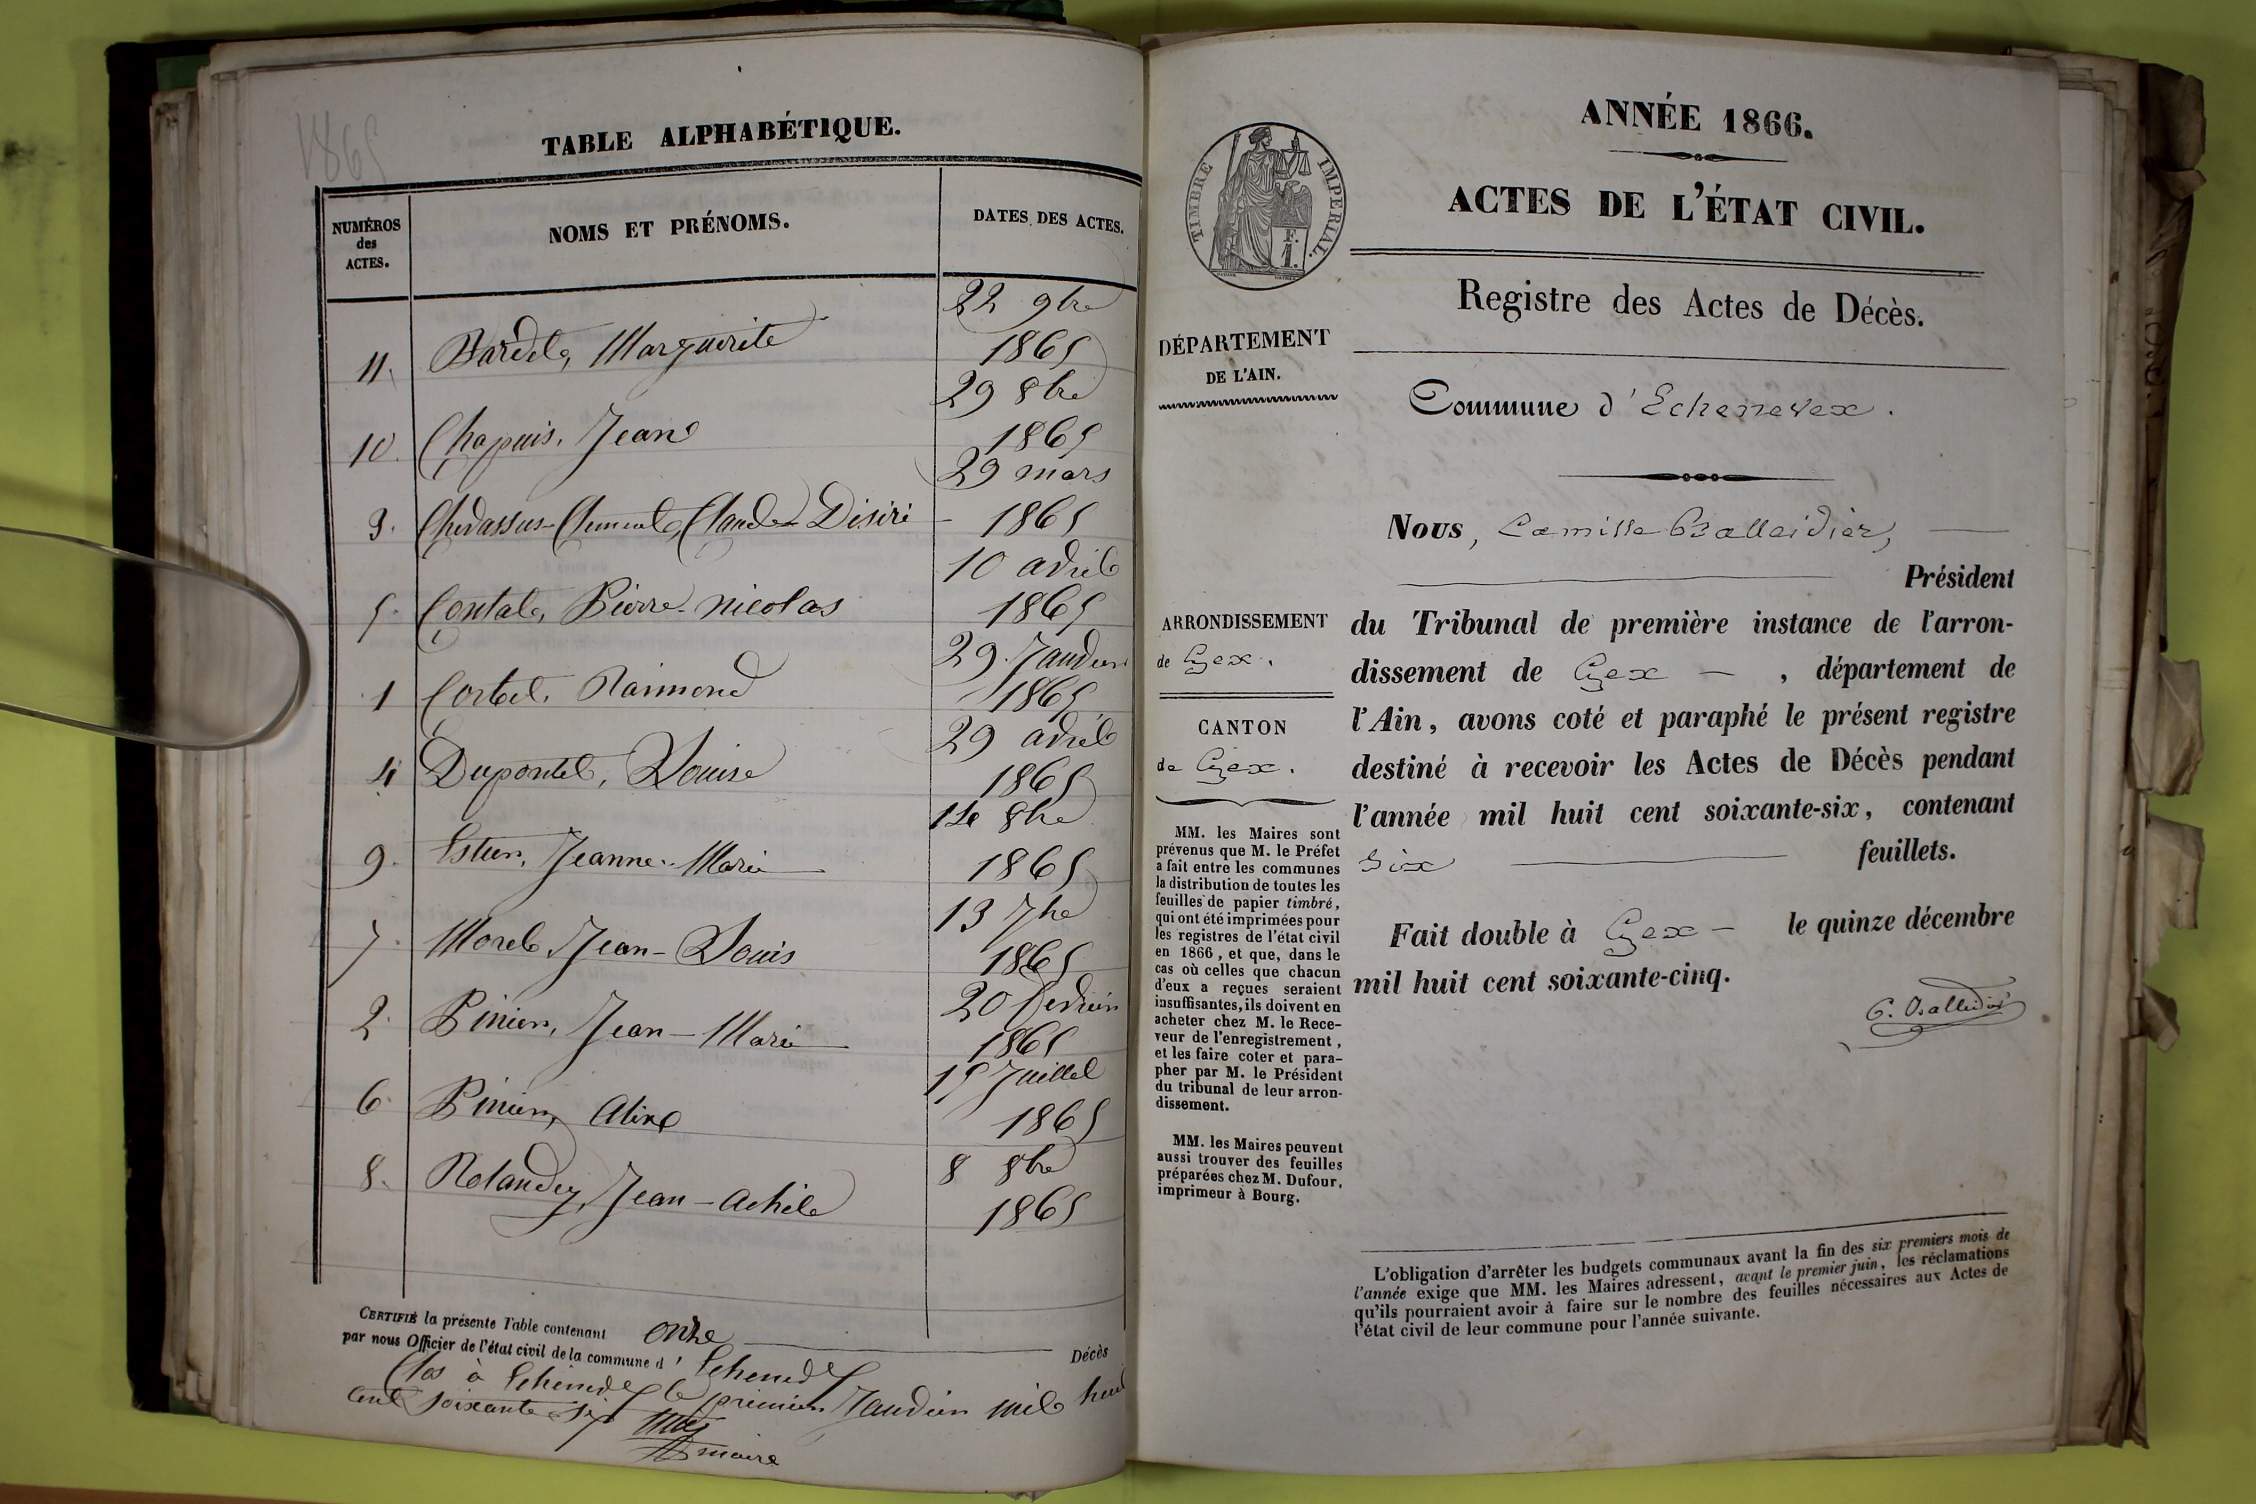 1865
TABLE ALPHABÉTIQUE.
NUMÉROS
des
ACTES.
NOMS ET PRÉNOMS.
DATES DES ACTES.
22 9bre
11. Bardet, Marguerite 1865
29 8bre
10. Chapuis, Jean 1865
29 mars
3. Chevassus-Clement, Claude-Désiré - 1865
10 avril
5. Contat, Pierre-nicolas 1865
29 Janvier
1 Cortet, Raimond 1865
29 avril
4 Dupontet, Louise 1865
14 8bre
9. Estier, Jeanne-Marie 1865
13 7bre
7. Morel, Jean-Louis 1865
20 fevrier
2. Pinier, Jean-Marie 1865
15 Juillet
6. Pinier, Aline 1865
8 8bre
8. Rolandez, Jean-achile 1865
CERTIFIÉ la présente Table contenant onze Décès
par nous Officier de l'état civil de la commune d' Echenevex
Clos à Echenevex le premier Janvier mil huit
cent soixante six
maire
ANNÉE 1866.
ACTES DE L'ÉTAT CIVIL.
TIMBRE IMPÉRIAL.
F.
1.
Registre des Actes de Décès.
DÉPARTEMENT
DE L'AIN.
Commune d'Echenevex.
Nous, Camille Balleidier,
Président
du Tribunal de première instance de l'arron-
dissement de Gex - , département de
l'Ain, avons coté et paraphé le présent registre
destiné à recevoir les Actes de Décès pendant
l'année mil huit cent soixante-six, contenant
Six feuillets.
Fait double à Gex - le quinze décembre
mil huit cent soixante-cinq.
C. Balleidier
ARRONDISSEMENT
de Gex.
CANTON
de Gex.
MM. les Maires sont
prévenus que M. le Préfet
a fait entre les communes
la distribution de toutes les
feuilles de papier timbré,
qui ont été imprimées pour
les registres de l'état civil
en 1866, et que, dans le
cas où celles que chacun
d'eux a reçues seraient
insuffisantes, ils doivent en
acheter chez M. le Rece-
veur de l'enregistrement,
et les faire coter et para-
pher par M. le Président
du tribunal de leur arron-
dissement.
MM. les Maires peuvent
aussi trouver des feuilles
préparées chez M. Dufour,
imprimeur à Bourg.
L'obligation d'arrêter les budgets communaux avant la fin des six premiers mois de
l'année exige que MM. les Maires adressent, avant le premier juin, les réclamations
qu'ils pourraient avoir à faire sur le nombre des feuilles nécessaires aux Actes de
l'état civil de leur commune pour l'année suivante.